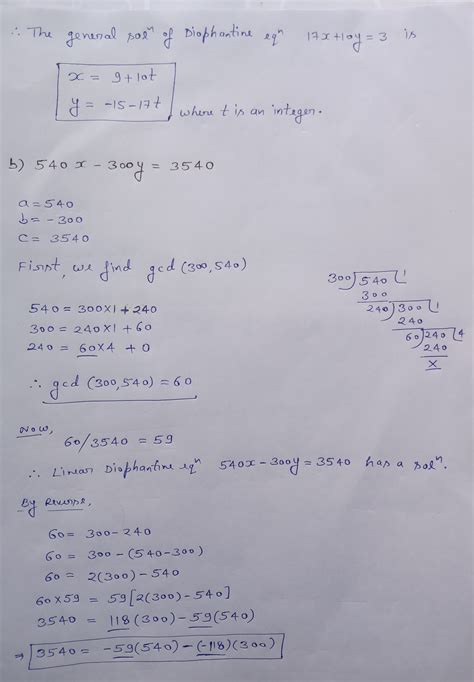 ∴ The general solⁿ of Diophantine eqⁿ 17x+10y=3 is
x = 9+10t
y = -15-17t
where t is an integer.
b) 540x - 300y = 3540
a = 540
b = -300
c = 3540
First, we find gcd (300,540)
540 = 300×1 + 240
300 = 240×1 + 60
240 = 60×4 + 0
300) 540 (1
300
240) 300 (1
240
60) 240 (4
240
×
∴ gcd (300,540) = 60
Now,
60/3540 = 59
∴ Linear Diophantine eqⁿ 540x-300y = 3540 has a solⁿ.
By Reverse,
60 = 300-240
60 = 300-(540-300)
60 = 2(300)-540
60×59 = 59[2(300)-540]
3540 = 118(300)-59(540)
⇒ 3540 = -59(540)-(-118)(300)